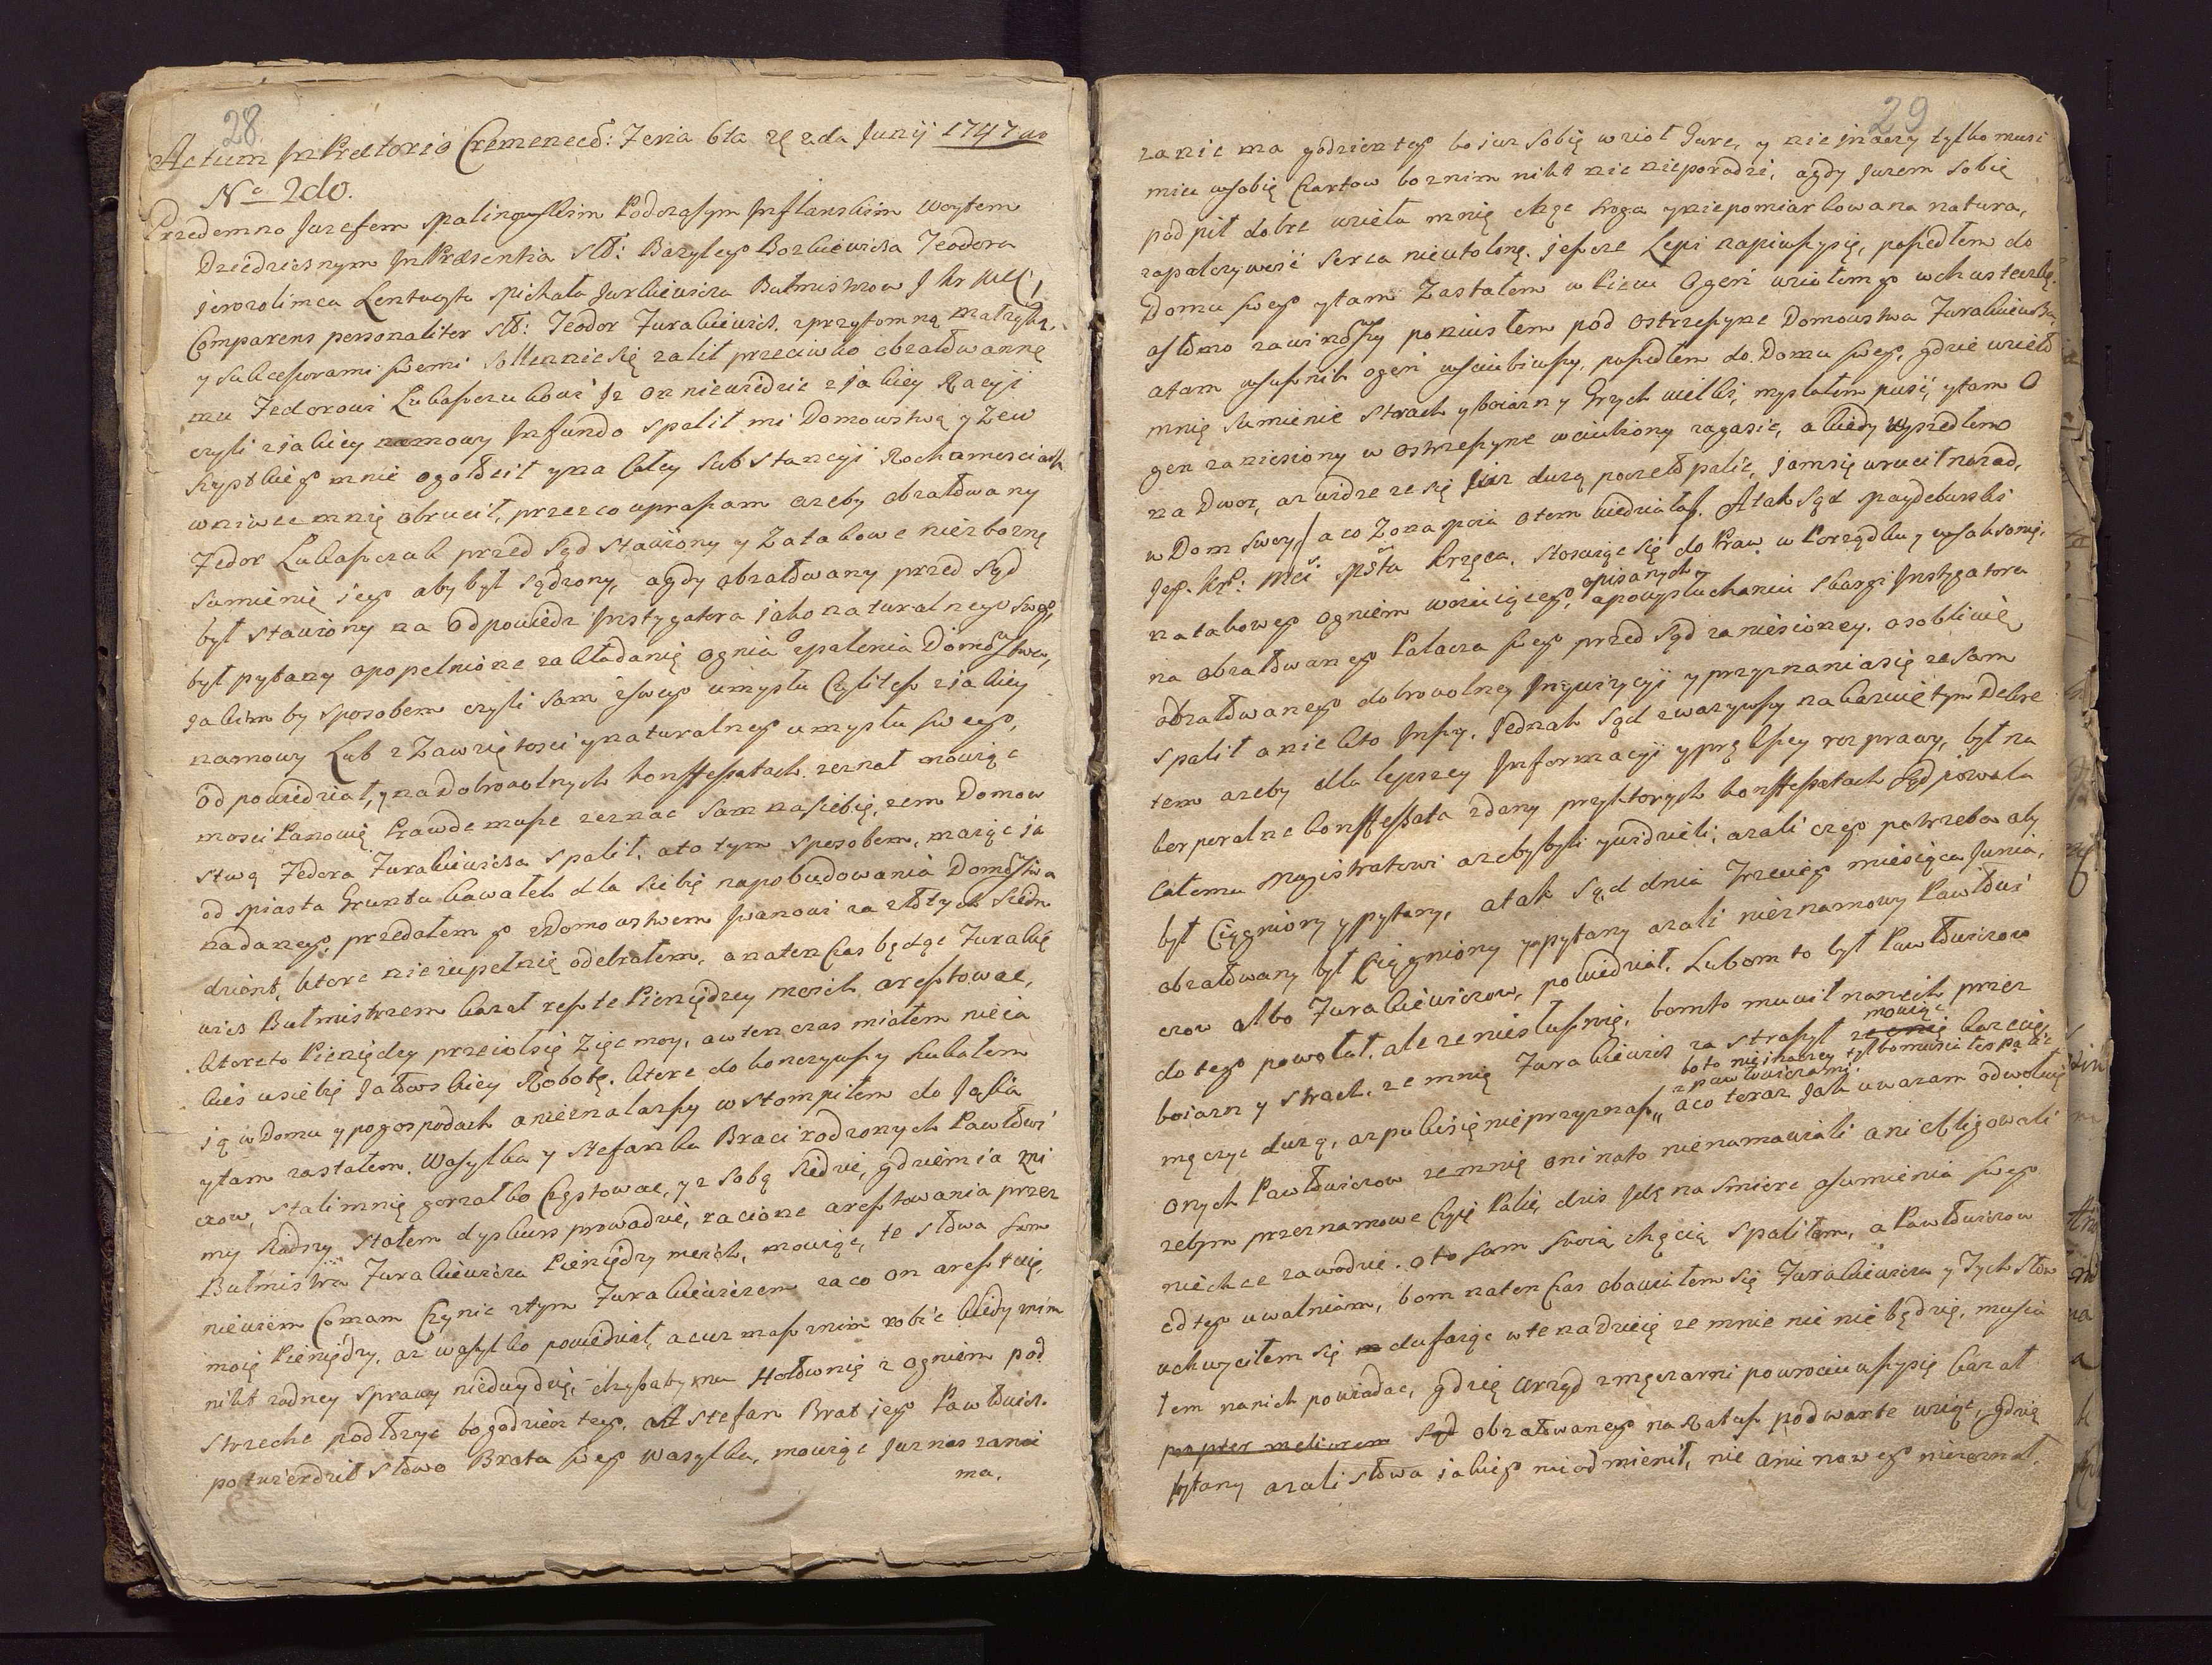 28.
Actum in Prætorio Cremenecs: Feria 6ta 2da Junij 1747 ao
No 2do.
Przedemno Juzefem Podczaszym Inflanskim Woytem
Dziedzicznym In Præsentia Sł: Bazylego Bozkiewicza Teodora
Jerozolimca Lentwoyta Michała Jurkiewicza Bułmistrzow J Kr Mci,
Comparens personaliter Sł: Teodor Zurakiewicz. z przytomną Małząką,
y Sukcessorami swemi Sollennie się zalił przeciwko obzałowannę
mu Fedorowi Lukaszczukowi Iz on niewidzic z jakiey Racyji
czyli z jakiey namowy Infundo spalił mi Domowstwą y Zew
szystkiego mnie ogołocił y na Całey Substancyi Rochomosciach
wniwecz mnię obrucił, przezco upraszam azeby obzałowany
Fedor Lukaszczuk przed Sąd stawiony y Za takowe niezbozne
sumienię jego aby był sądzony, a gdy obzałowany przed Sąd
był stawiony na odpowiedz Instygatora jako naturalnego swego,
był pytany o popełnione zakładanię ognia y spalenia Domostwa,
Jakim by sposobem czyli sam z swego umysłu Czylitesz z jakiey
namowy Lub z Zawziętosci y naturalnego umysłu swego,
odpowiedział, y na dobrowolnych konffessatach zeznał mowiąc
mosci Panowie Prawde musze zeznac sam na siebię, zem Domow
stwą Fedora Zurakiewicza spalił. a to tym sposobem, maiąc ja
od Miasta Gruntu kawałek dla siebię na pobudowania Domostwa
nadanego, przedałem go z Domowstwem Iwanowi za złotych siedm
dziesiąt, ktore niezupełnię odebrałem, a natenczas będąc Zurakie
wicz Bułmistrzem kazał resztę Pieniędzey moich aresztowac,
ktoreto Pieniędzy przeiołsię Zięc moy, a w ten czas miałem nieja
kies usiebię Jałowskiey Robotę. ktore dokonczywszy szukałem
ią w Domu y po gospodach a nieznalazszy wstompiłem do Jaska
y tam zastałem. Wasylka y Stefanka Braci rodzonych Pawłowi
czow, stali mnię gorzałko Częstowac, y z sobą siedzię, gdziem ia z ni
my siedzęy stałem dyskurs prowadzić, racione aresztowania przez
Bułmistrza Zurakiewicza Pieniędzy moich, mowiąc, te słowa sam
niewiem Co mam Czynic z tym Zurakiewiczem za co on aresztuię
moię Pieniędzy, az Wasylko powiedział, a cuz masz z nim robić kiedy z nim
nikt zadney sprawy niedoydzię, chyba by mu Hołownię z ogniem pod
strzeche podłozyc bo godzien tego. Stefan Brat jego Pawłowicz.
potwierdził słowo Brata swego Wasylka, mowiąc Juz nas zanic
ma,
29
zanic ma godzien tego bo juz sobię wzioł Gure, y nie inaczy tylko musi
miec w sobię Czartow bo z nim nikt nic nie poradzi, a gdy Juzem sobię
podpił dobrze wzieła mnię chęc sroga y niepomiarkowana natura,
zapalczywość serca nieutoloną. jescze Lepi zapiwszysię, poszedłem do
Domu swego y tam Zastałem w Piecu Ogeń wziołem go w chusteczkę.
zawinowszy poniusłem pod ostrzeszyne Domowstwa Zurakiewicza,
a tam wsusznik ogeń wsciubiwszy, poszedłem do Domu swego, gdzie wzioł
mnię sumienie strach y boiazn y Grych wielki, myslałem pusć, y tam O
gen zaniesiony w ostrzeszyne wciubiony zagasic, a kiedy wyszedłem
na Dwor, az widze ze się juz duzą poczeło palic, jamsię wrucił nazad,
w Dom swoy / a co Zona moia otem wiedziała /. A tak Sąd Maydeburski
Jego Kr: Mci Msta Krzęca. stosuiąc się do Praw. w Porządku y w Saksonię.
opisanych y
na takowego ogniem woiuiącego, a powysłuchaniu skargi Instygatora
na obzałowanego Palacza swego przed Sąd zaniesioney. osobliwię
obzałowanego dobrowolney Inqwizycyi y przyznaniasię ze sam
spalił a nie kto Inszy. Jednak Sąd zwazywszy na bacznie tym Dekre
tem azeby dlla lepszey Informacyji y prętszey rozprawy, był na
korporalne konffessata zdany przyktorych konffessatach Sąd pozwala
całemu Magistratowi azeby byli y widzieli; azali czego potrzeba aby
był Ciągniony y pytany, a tak Sąd dnia Trzeciego miesiąca Junia,
obzałowany był Ciągniony y pytany azali nie z namowy Pawłowi
czow albo Zurakiewiczow, powiedział. Lubom to był Pawłowiczow
do tego powołał. ale ze niesłusznię, bom to mucił na nich przez
mowiąc
boiazn y strach, ze mnię Zurakiewicz zastraszył ze cnię kazeię
boto nie inaczey tylkomusiałes palic
z Pawłowiczami
męczyc duzą, azpokisię nieprzyznasz,, a co teraz Jak uwazam odwołuię
onych Pawłowiczow ze mnię oni nato nienamawiali ani obligowali
zebym przez namowe Czyię Palił, dzis Idę na smierc a sumienia swego
niechce zawodzic. oto sam swoią chęcią spaliłem, a Pawłowiczow
od tego uwalniam, bom natenczas obawiałem się Zurakiewicza y Tych Słow
uchwyciłem się dufaiąc w te nadzieię ze mnie nic nie będzię, musia
łem nanich powiadac, gdzię Urząd z męczarni powrociwszysię kazał
propter meliorem Sąd obzałowanego na Ratusz pod warte wziąc, gdzię
pytany azali słowa jakiego niodmienił, nie ani nowego niezeznał.